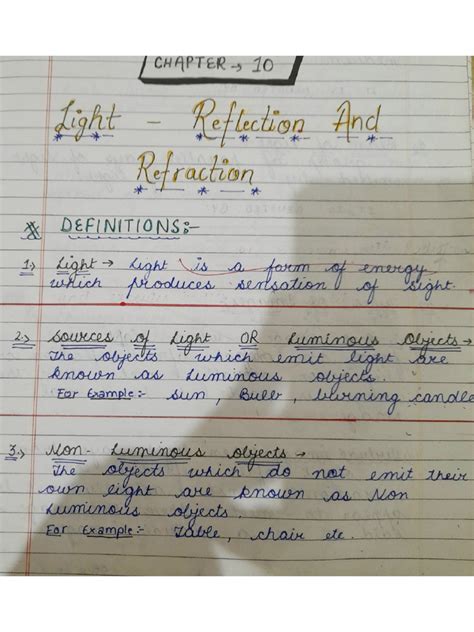 CHAPTER → 10
Light - Reflection And
Refraction
DEFINITIONS:-
1.> Light → Light is a form of energy
which produces sensation of sight.
2.> Sources of Light OR Luminous Objects →
The objects which emit light are
known as Luminous objects.
For Example:- sun, Bulb, burning candle
3.> Non-Luminous objects →
The objects which do not emit their
own light are known as Non
Luminous objects.
For Example:- Table, chair etc.